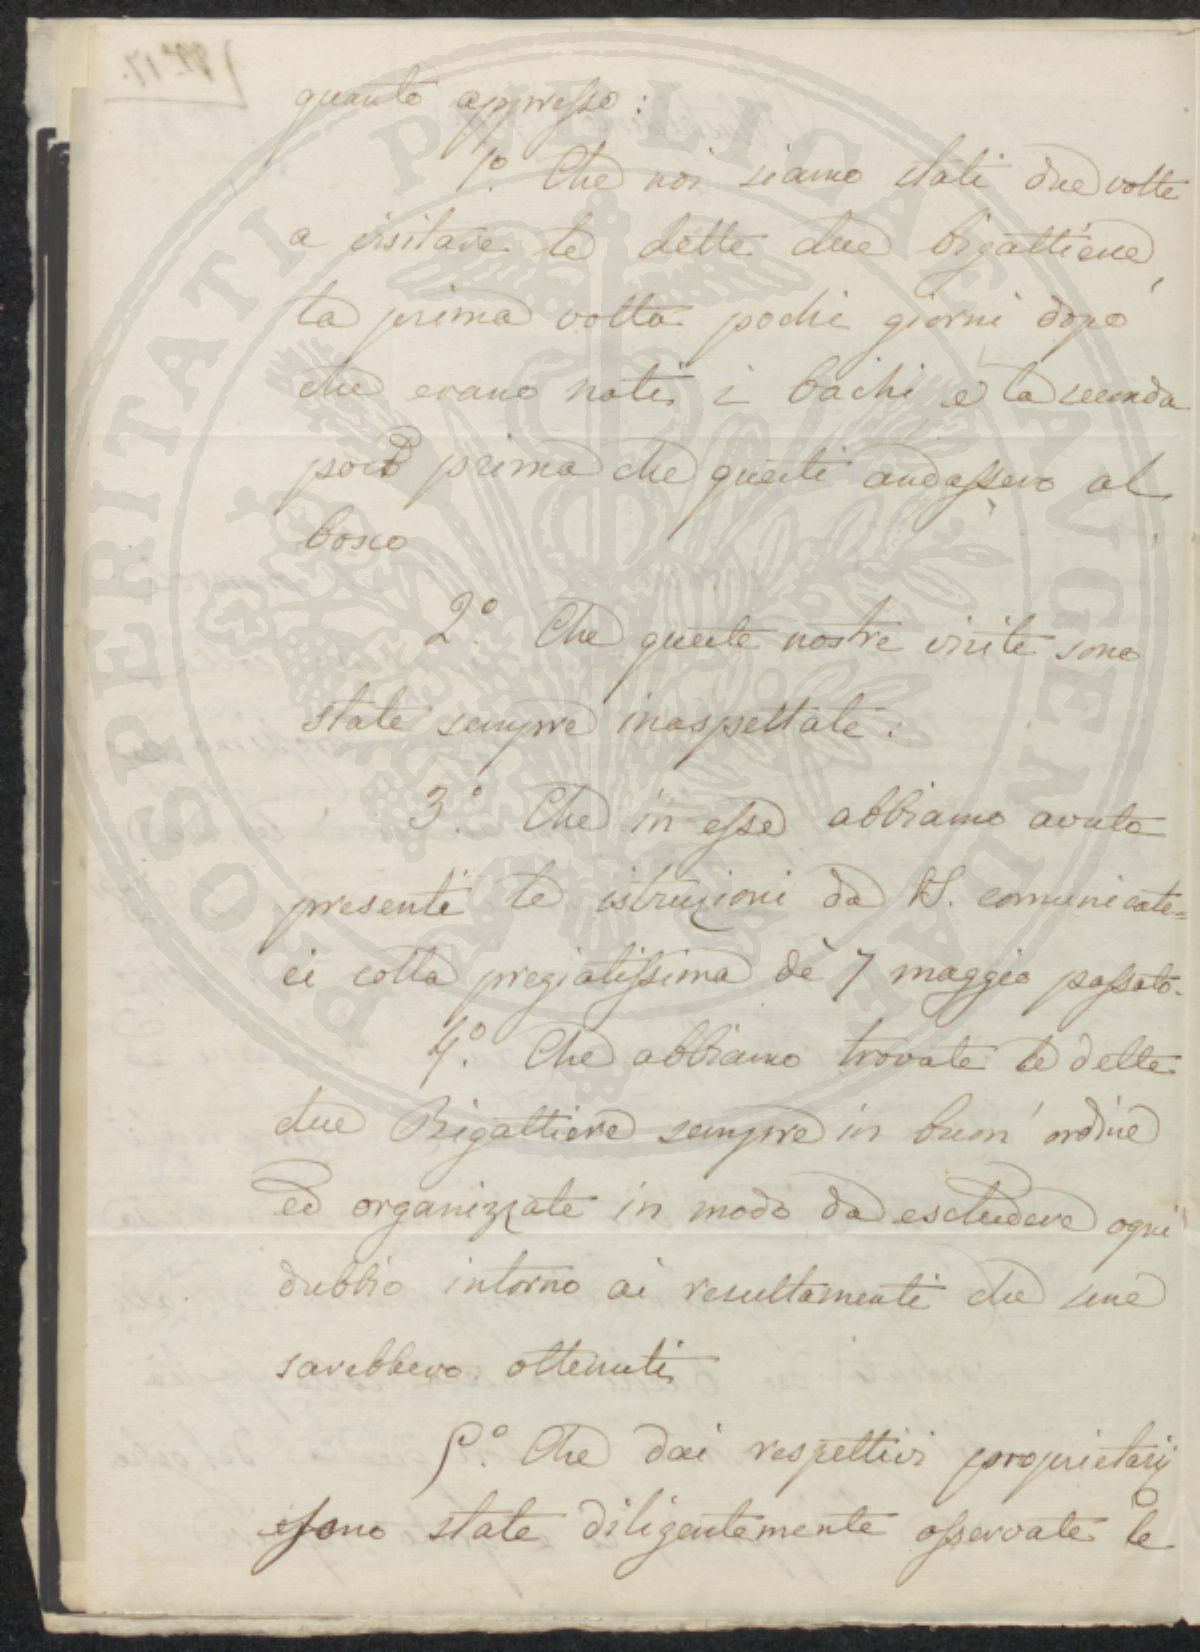 quanto appresso:
1.º Che noi siamo stati due volte
a visitare le dette due bigattiere,
la prima volta pochi giorni dopo
che erano nati i bachi e la seconda
poco prima che questi andassero al
bosco
2.º Che queste nostre visite sono
state sempre inaspettate.
3.º Che in esse abbiamo avuto
presenti le istruzioni da V.S. comunicate=
ci colla pregiatissima de 7 maggio passato.
4.º Che abbiamo trovate le dette
due Bigattiere sempre in buon ordine
ed organizzate in modo da escludere ogni
dubbio intorno ai resultamenti che se ne
sarebbero ottenuti
5.º Che dai respettivi proprietarj
sono state diligentemente osservate le
PROSPERITATI PVBLICAE AVGENDAE